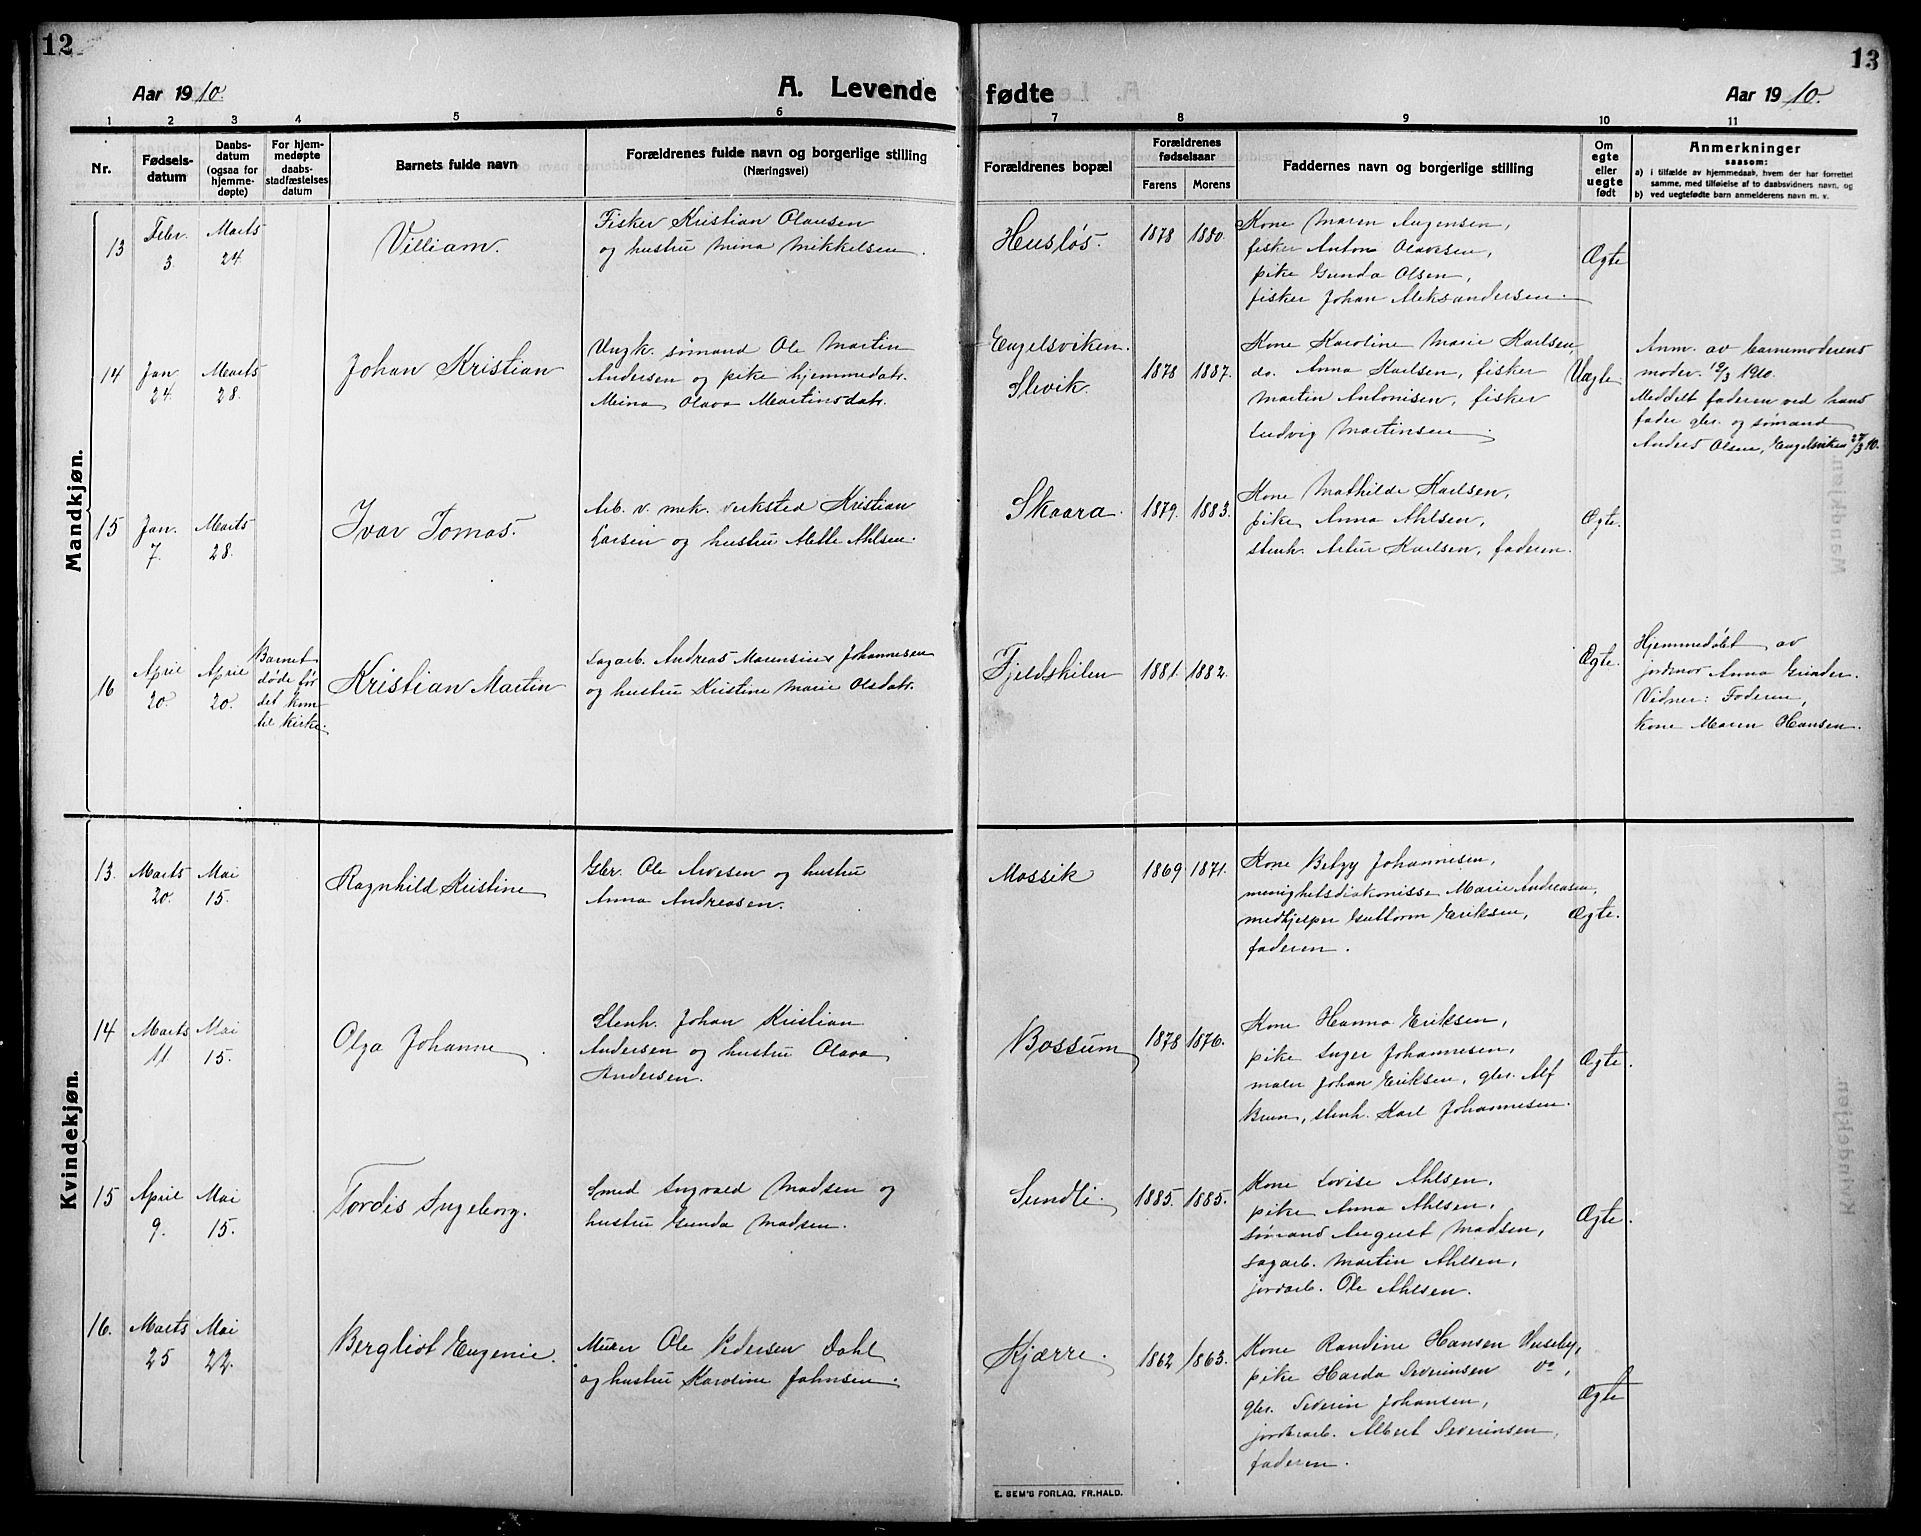 12
13
Aar 1910.
A. Levende fødte
Aar 1910.
1 2 3 4 5 6 7 8 9 10 11
Nr.
Fødsels-
datum
Daabs-
datum
(ogsaa for
hjemme-
døpte)
For hjem-
medøpte
daabs-
stadfæstelses
datum
Barnets fulde navn
Forældrenes fulde navn og borgerlige stilling
(Næringsvei)
Forældrenes bopæl
Forældrenes
fødselsaar
Farens Morens
Faddernes navn og borgerlige stilling
Om
egte
eller
uegte
født
Anmerkninger
saasom:
a) i tilfælde av hjemmedaab, hvem der har forrettet
samme, med tilføielse af to daabsvidners navn, og
b) ved uegtefødte barn anmelderens navn m. v.
Mandkjøn.
13
Febr.
3.
Marts
24.
Villiam.
Fisker Kristian Olausen
og hustru Mina Mikkelsen.
Husløs.
1878 1880.
Kone Maren Augensen,
fisker Anton Olavesen,
pike Gunda Olsen,
fisker Johan Aleksandersen.
Ægte
14
Jan
24.
Marts
28.
Johan Kristian
Ungk. sømand Ole Martin
Andersen og pike hjemmedatr.
Meina Olava Martinsdatr.
Engelsviken.
Slevik.
1878 1887.
Kone Karoline Marie Karlsen,
do. Anna Karlsen, fisker
Martin Antonisen, fisker
Ludvig Martinsen.
Uægte
Anm. av barnemoderens
moder. 12/3 1910.
Meddelt faderen ved hans
fader gbr. og sømand
Anders Olsen, Engelsviken 27/3 10.
15
Jan.
7.
Marts
28.
Ivar Tomas.
Arb. v. mek. verksted Kristian
Larsen og hustru Alette Ahlsen.
Skaara.
1879. 1883.
Kone Mathilde Karlsen,
pike Anna Ahlsen,
stenh. Artur Karlsen, faderen.
Ægte.
16
April
20.
April
20.
Barnet
døde før
det kom
til kirke.
Kristian Martin
Sagarb. Andreas Marensius Johannesen
og hustru Kristine Marie Olsdatr.
Fjeldskilen
1881. 1882.
Ægte.
Hjemmedøbt av
jordmor Anna Grinder.
Vidner: Faderen,
kone Maren Hansen.
Kvindekjøn.
13.
Marts
20.
Mai
15.
Ragnhild Kristine
Gbr. Ole Arvesen og hustru
Anna Andreasen.
Mossik
1869 1871.
Kone Betzy Johannesen,
menighetsdiakonisse Marie Andreasen,
medhjelper Guttorm Eriksen,
faderen.
Ægte.
14
Marts
11
Mai
15.
Olga Johanne
Stenh. Johan Kristian
Andersen og hustru Olava
Andersen.
Bossum
1878 1876.
Kone Hanna Eriksen,
pike Inger Johannesen,
maler Johan Eriksen, gbr. Alf
Brun, stenh. Karl Johannesen.
Ægte.
15
April
9.
Mai
15.
Tordis Ingeborg.
Smed Ingvald Madsen og
hustru Gunda Madsen.
Sundli.
1885. 1885.
Kone Lovise Ahlsen,
pike Anna Ahlsen,
sømand August Madsen,
sagarb. Martin Ahlsen,
jordarb. Ole Ahlsen.
Ægte.
16.
Marts
25
Mai
22.
Bergliot Eugenie.
Murer Ole Pedersen Dahl
og hustru Karoline Johnsen.
Kjærre.
1862 1863.
Kone Randine Hansen Huseby,
pike Harda Severinsen do,
gbr. Severin Johansen,
jordarb. Albert Severinsen,
faderen.
Ægte
E. SEM'S FORLAG, FR.HALD.